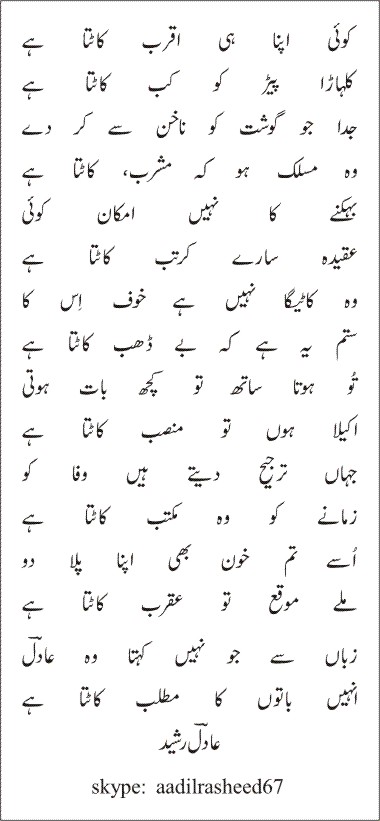 کوئی اپنا ہی اقرب کاٹتا ہے
کلہاڑا پیڑ کو کب کاٹتا ہے
جدا جو گوشت کو ناخن سے کر دے
وہ مسلک ہو کہ مشرب، کاٹتا ہے
بہکنے کا نہیں امکان کوئی
عقیدہ سارے کرتب کاٹتا ہے
وہ کاٹیگا نہیں ہے خوف اِس کا
ستم یہ ہے کہ بے ڈھب کاٹتا ہے
تُو ہوتا ساتھ تو کچھ بات ہوتی
اکیلا ہوں تو منصب کاٹتا ہے
جہاں ترجیح دیتے ہیں وفا کو
زمانے کو وہ مکتب کاٹتا ہے
اُسے تم خون بھی اپنا پلا دو
ملے موقع تو عقرب کاٹتا ہے
زباں سے جو نہیں کہتا وہ عادلؔ
انہیں باتوں کا مطلب کاٹتا ہے
عادلؔ رشید
skype: aadilrasheed67